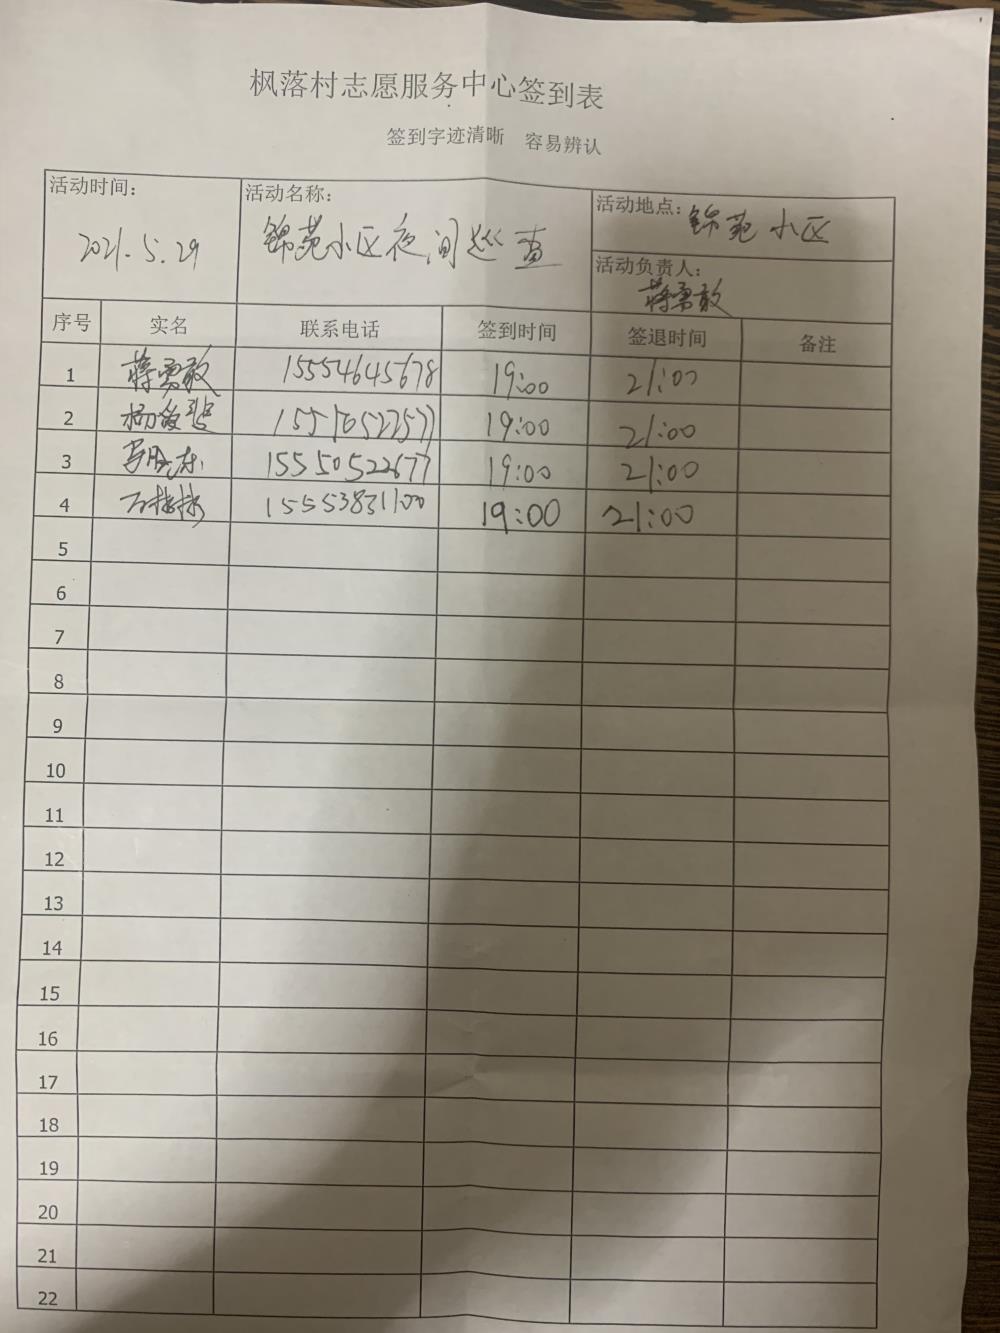 枫落村志愿服务中心签到表
签到字迹清晰 容易辨认
活动时间：
2021.5.29
活动名称：
锦苑小区夜间巡查
活动地点：锦苑小区
活动负责人：
蒋勇敢
序号 实名 联系电话 签到时间 签退时间 备注
1 蒋勇敢 15554645678 19:00 21:00
2 19:00 21:00
3 15550522677 19:00 21:00
4 15553831100 19:00 21:00
5
6
7
8
9
10
11
12
13
14
15
16
17
18
19
20
21
22